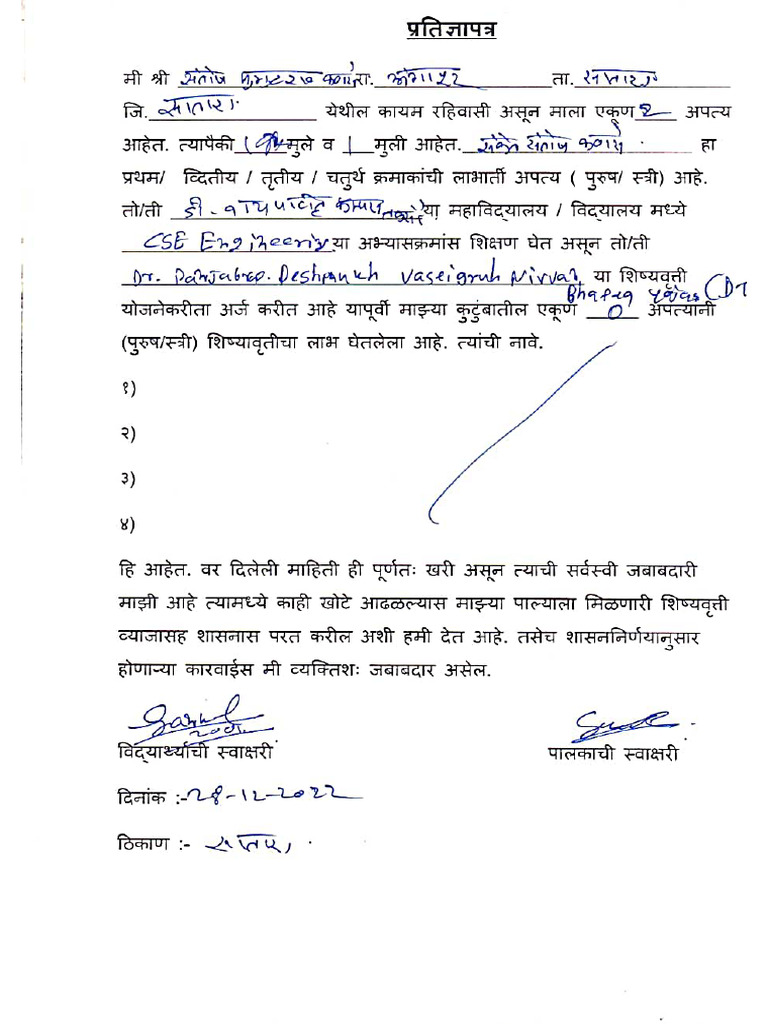 प्रतिज्ञापत्र
मी श्री संतोष रा. ता. सातारा
जि. सातारा येथील कायम रहिवासी असून माला एकूण २ अपत्य
आहेत. त्यापैकी 1 मुले व 1 मुली आहेत. संकेत संतोष हा
प्रथम/ व्दितीय / तृतीय / चतुर्थ क्रमाकांची लाभार्ती अपत्य ( पुरुष/ स्त्री) आहे.
तो/ती डी. वाय पाटील या महाविद्यालय / विद्यालय मध्ये
CSE Engineering या अभ्यासक्रमांस शिक्षण घेत असून तो/ती
Dr. Panjabrao. Deshmukh Vastigruh Nirvah या शिष्यवृत्ती
Bhatta
योजनेकरीता अर्ज करीत आहे यापूर्वी माझ्या कुटुंबातील एकूण 0 अपत्यानी
(पुरुष/स्त्री) शिष्यावृतीचा लाभ घेतलेला आहे. त्यांची नावे.
१)
२)
३)
४)
हि आहेत. वर दिलेली माहिती ही पूर्णतः खरी असून त्याची सर्वस्वी जबाबदारी
माझी आहे त्यामध्ये काही खोटे आढळल्यास माझ्या पाल्याला मिळणारी शिष्यवृत्ती
व्याजासह शासनास परत करील अशी हमी देत आहे. तसेच शासननिर्णयानुसार
होणाऱ्या कारवाईस मी व्यक्तिशः जबाबदार असेल.
विद्यार्थ्याची स्वाक्षरी पालकाची स्वाक्षरी
दिनांक :- 28-12-2022
ठिकाण :- सातारा